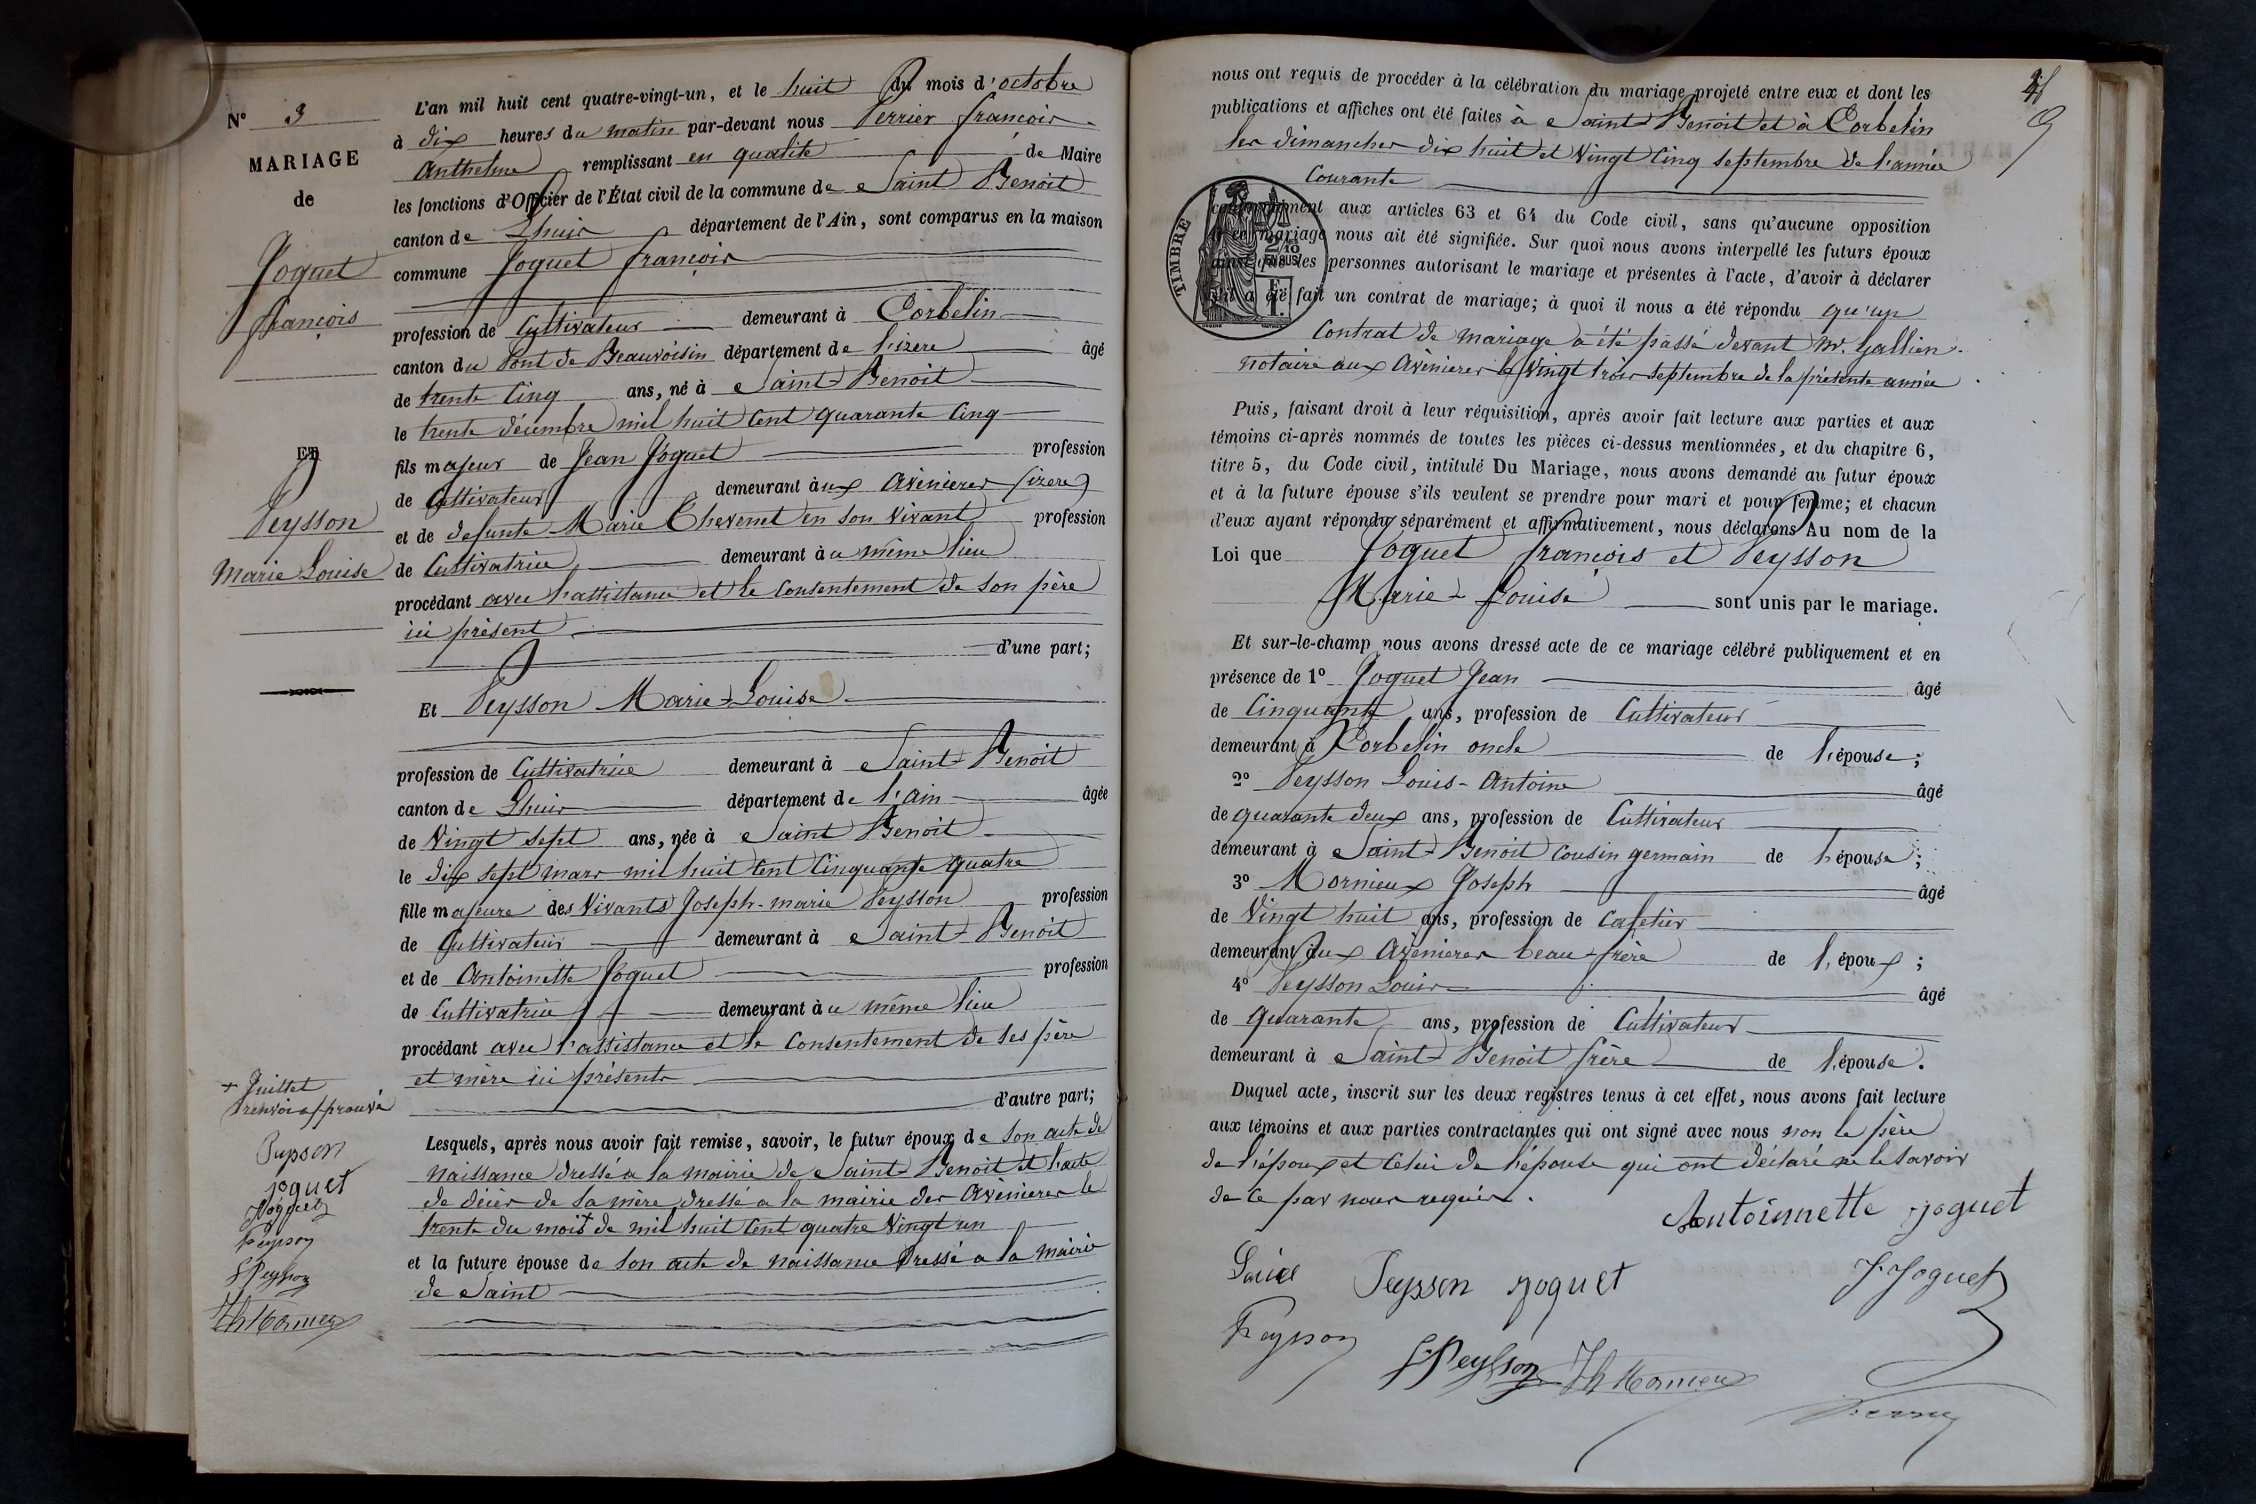 N° 3
MARIAGE
de
Joguet
françois
ET
Peysson
Marie Louise
L'an mil huit cent quatre-vingt-un, et le huit du mois d'octobre
à dix heures du matin par-devant nous Perrier françois
Anthelme remplissant en qualité de Maire
les fonctions d'Officier de l'État civil de la commune de Saint Benoit
canton de Lhuis département de l'Ain, sont comparus en la maison
commune Joguet françois
profession de Cultivateur demeurant à Corbelin
canton du Pont de Beauvoisin département de l'isere âgé
de trente Cinq ans, né à Saint-Benoit
le trente décembre mil huit Cent quarante Cinq
fils majeur de Jean Joguet profession
de Cultivateur demeurant aux Avenieres (isere)
et de defunte Marie Thevenet en son vivant profession
de Cultivatrice demeurant au même lieu
procédant avec l'assistance et le Consentement de son père
ici présent
d'une part;
Et Peysson Marie-Louise
profession de Cultivatrice demeurant à Saint-Benoit
canton de Lhuis département de l'Ain âgée
de Vingt sept ans, née à Saint Benoit
le dix sept mars mil huit Cent Cinquante quatre
fille majeure des Vivants Joseph-marie Peysson profession
de Cultivateur demeurant à Saint-Benoit
et de Antoinette Joguet profession
de Cultivatrice demeurant au même lieu
procédant avec l'assistance et le Consentement de ses père
et mère ici présents
d'autre part;
Lesquels, après nous avoir fait remise, savoir, le futur époux de son acte de
naissance dressé a la mairie de Saint-Benoit et l'acte
de décès de sa mère dressé a la mairie des Avenieres le
trente du mois de mil huit Cent quatre Vingt un
et la future épouse de son acte de naissance Dressé a la mairie
de Saint
+ Juillet
renvoi approuvé
Peysson
joguet
Joguet
Peysson
Peysson
nous ont requis de procéder à la célébration du mariage projeté entre eux et dont les
publications et affiches ont été faites à Saint-Benoit et à Corbelin
les dimanches dix huit et Vingt Cinq septembre de l'année
Courante
conformément aux articles 63 et 64 du Code civil, sans qu'aucune opposition
à ce mariage nous ait été signifiée. Sur quoi nous avons interpellé les futurs époux
ainsi que les personnes autorisant le mariage et présentes à l'acte, d'avoir à déclarer
s'il a été fait un contrat de mariage; à quoi il nous a été répondu qu'un
TIMBRE
2/10
EN SUS
Contrat de mariage a été passé devant Mr. Gallien
notaire aux Avenieres le Vingt trois septembre de la présente année
Puis, faisant droit à leur réquisition, après avoir fait lecture aux parties et aux
témoins ci-après nommés de toutes les pièces ci-dessus mentionnées, et du chapitre 6,
titre 5, du Code civil, intitulé Du Mariage, nous avons demandé au futur époux
et à la future épouse s'ils veulent se prendre pour mari et pour femme; et chacun
d'eux ayant répondu séparément et affirmativement, nous déclarons Au nom de la
Loi que Joguet françois et Peysson
Marie-Louise sont unis par le mariage.
Et sur-le-champ nous avons dressé acte de ce mariage célébré publiquement et en
présence de 1° Joguet Jean âgé
de Cinquante ans, profession de Cultivateur
demeurant à Corbelin oncle de l'épouse;
2° Peysson Louis-Antoine âgé
de quarante deux ans, profession de Cultivateur
demeurant à Saint-Benoit Cousin germain de l'épouse;
3° Mornieux Joseph âgé
de Vingt huit ans, profession de Cafetier
demeurant aux Avenieres beau-frère de l'époux;
4° Peysson Louis âgé
de quarante ans, profession de Cultivateur
demeurant à Saint-Benoit frère de l'épouse.
Duquel acte, inscrit sur les deux registres tenus à cet effet, nous avons fait lecture
aux témoins et aux parties contractantes qui ont signé avec nous non le père
de l'époux et celui de l'épouse qui ont déclaré ne le savoir
de ce par nous requis.
Antoinnette joguet
Louise Peysson joguet J. Joguet
Peysson
Peysson